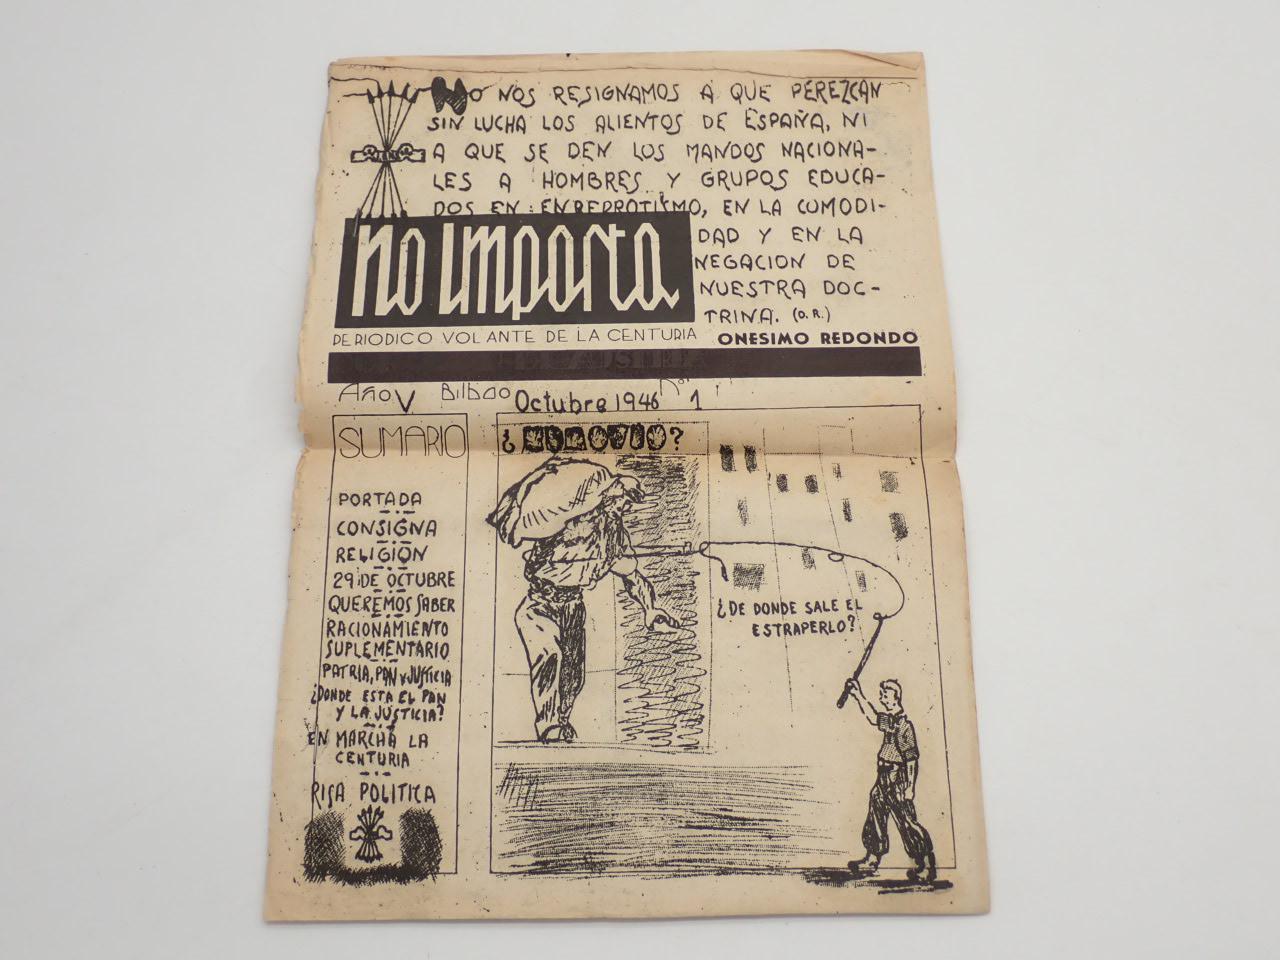 NO NOS RESIGNAMOS A QUE PEREZCAN
SIN LUCHA LOS ALIENTOS DE ESPAÑA, NI
A QUE SE DEN LOS MANDOS NACIONA-
LES A HOMBRES Y GRUPOS EDUCA-
DOS EN EN REDROTISMO, EN LA COMODI-
DAD Y EN LA
NEGACION DE
NUESTRA DOC-
TRINA. (O.R.)
No Importa
PERIODICO VOLANTE DE LA CENTURIA ONESIMO REDONDO
Año V Bilbao Octubre 1946 Nº 1
SUMARIO
PORTADA
CONSIGNA
RELIGION
29 DE OCTUBRE
QUEREMOS SABER
RACIONAMIENTO
SUPLEMENTARIO
PATRIA, PAN Y JUSTICIA
¿DONDE ESTA EL PAN
Y LA JUSTICIA?
EN MARCHA LA
CENTURIA
RISA POLITICA
¿DE DONDE SALE EL
ESTRAPERLO?